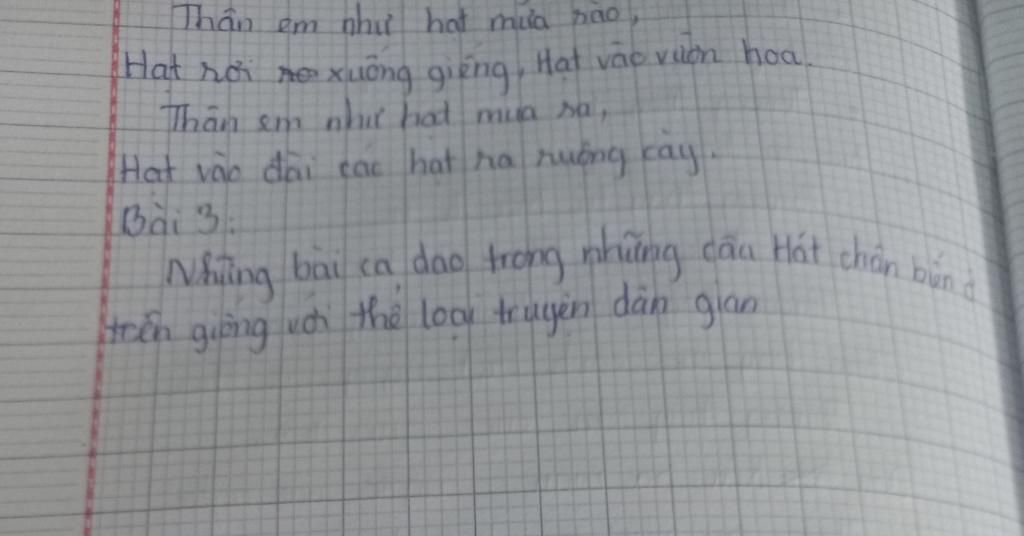 Thân em như hạt mưa rào,
Hạt rơi xuống giếng, Hạt vào vườn hoa.
Thân em như hạt mưa sa,
Hạt vào đài các hạt ra ruộng cày.
Bài 3:
Những bài ca dao trong những câu Hát chân bún ở
trên giống với thể loại truyện dân gian